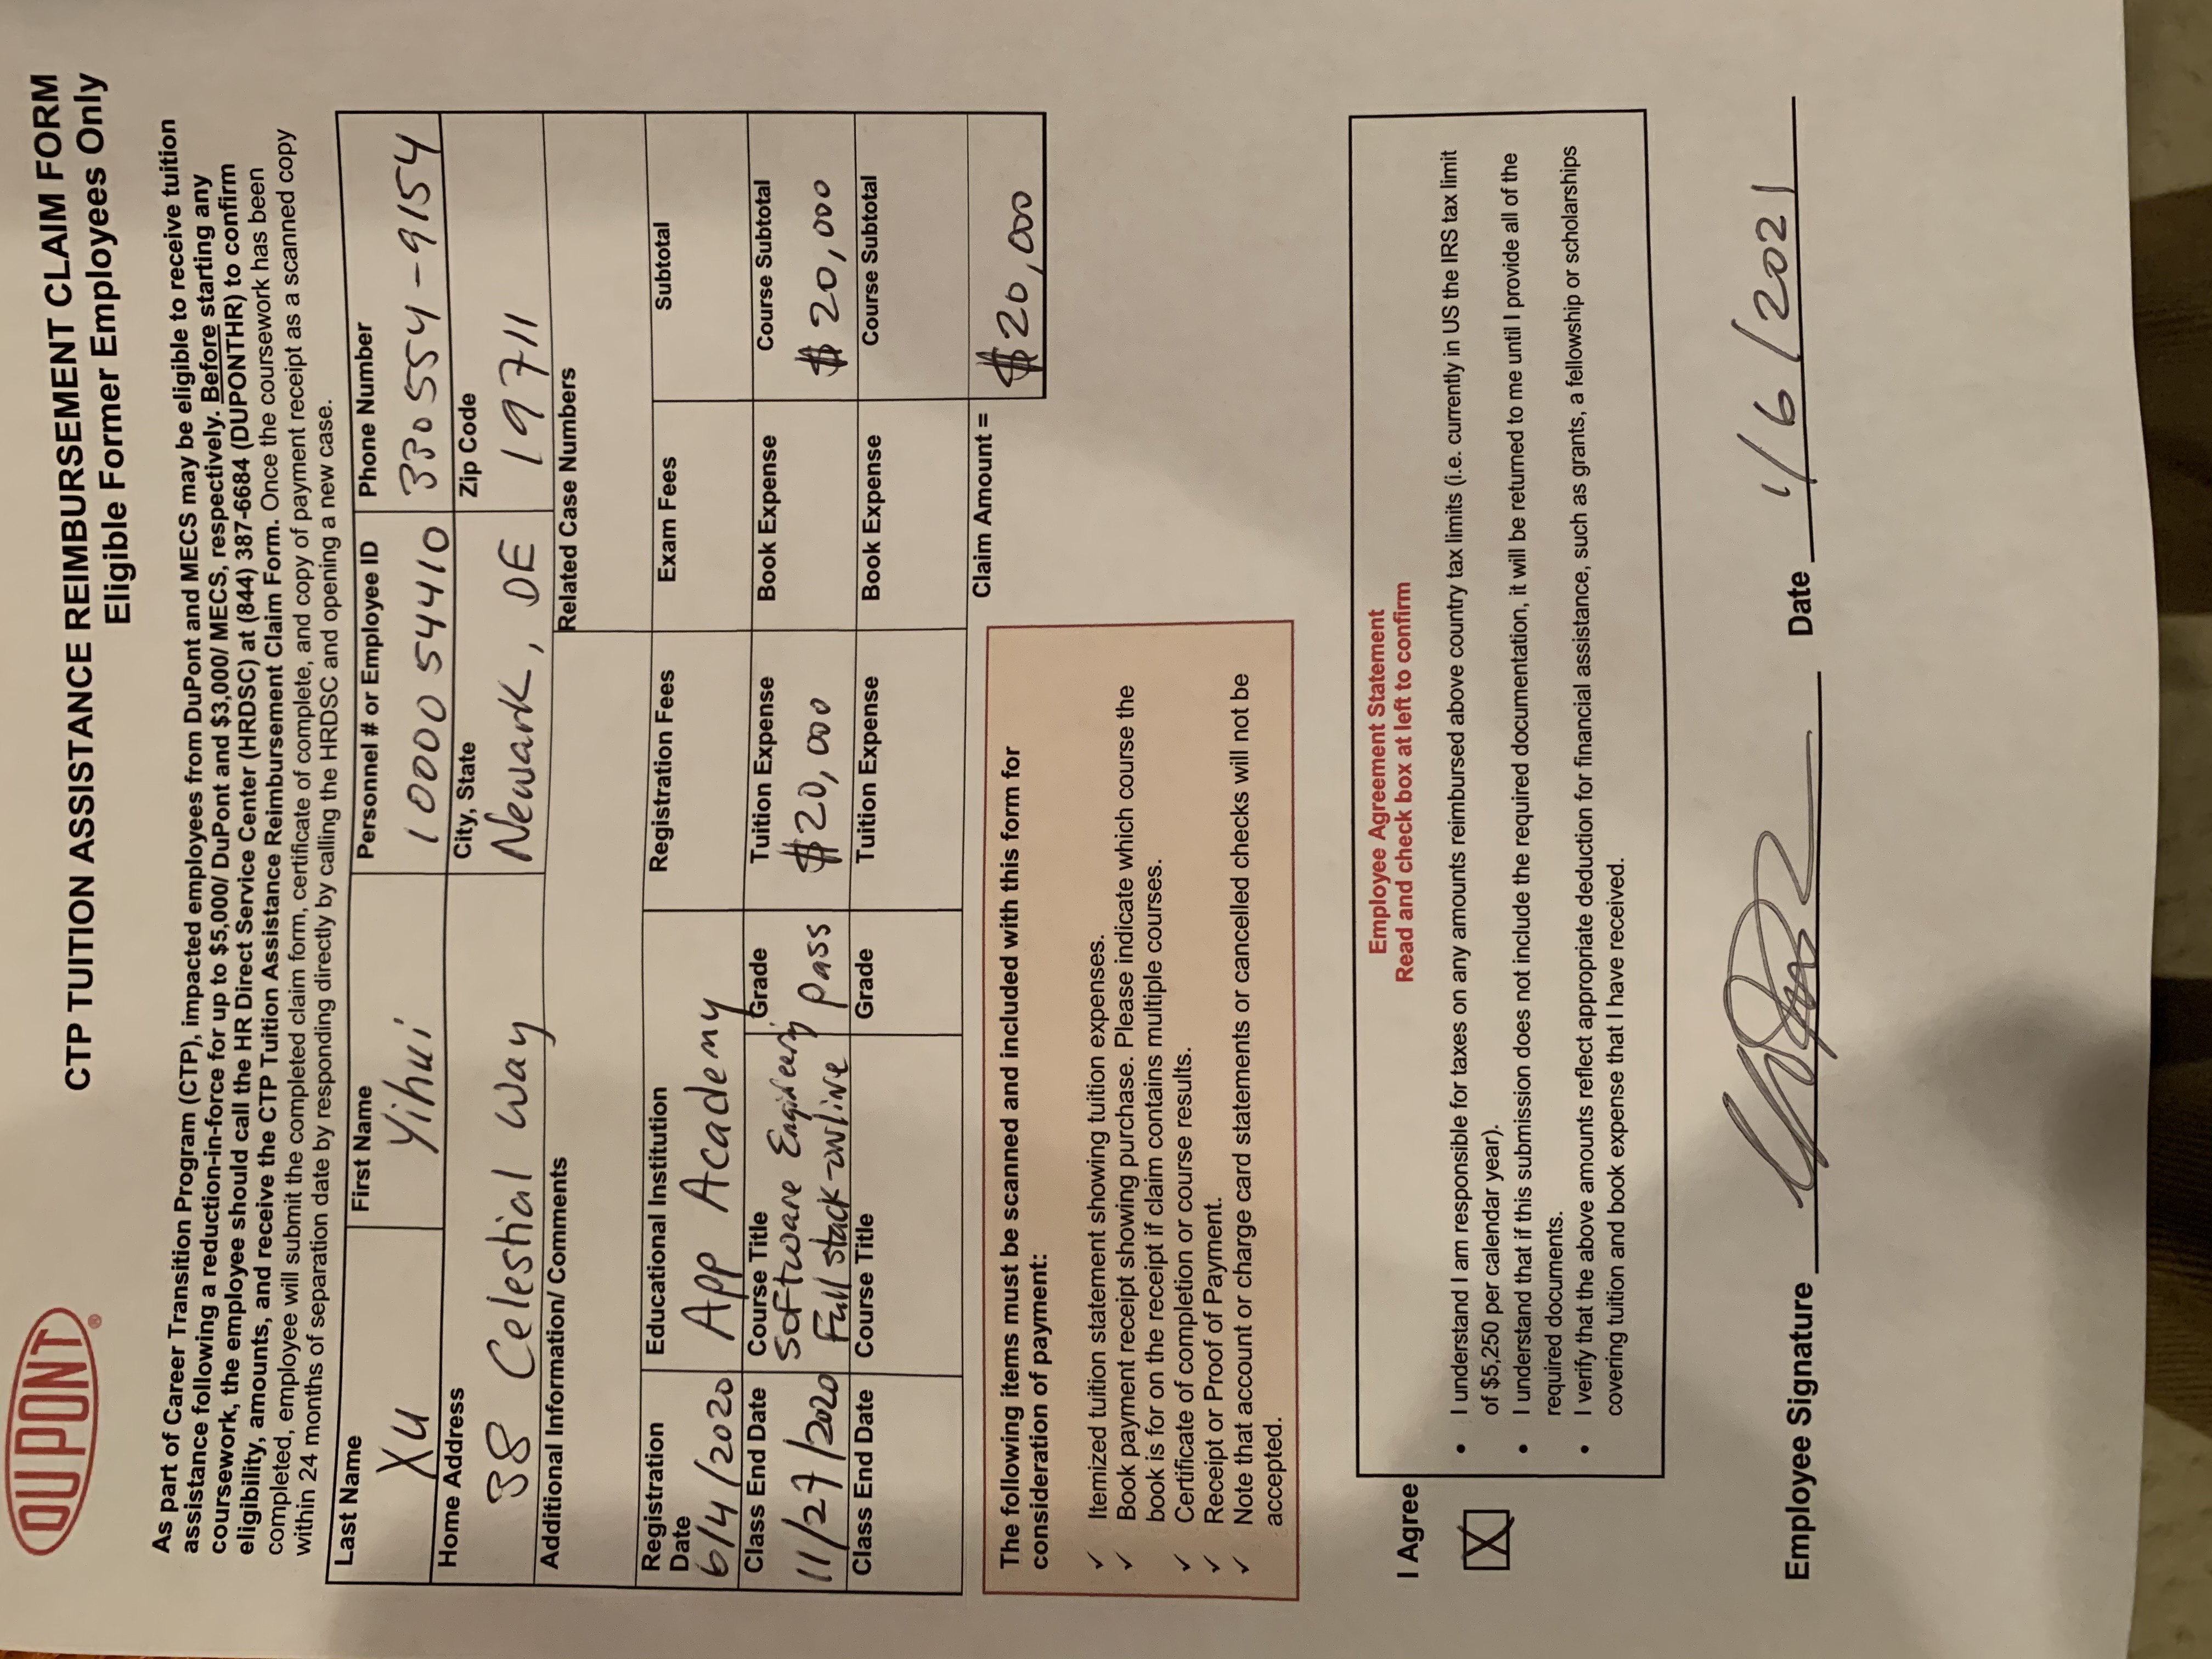 DUPONT®
CTP TUITION ASSISTANCE REIMBURSEMENT CLAIM FORM
Eligible Former Employees Only
As part of Career Transition Program (CTP), impacted employees from DuPont and MECS may be eligible to receive tuition
assistance following a reduction-in-force for up to $5,000/ DuPont and $3,000/ MECS, respectively. Before starting any
coursework, the employee should call the HR Direct Service Center (HRDSC) at (844) 387-6684 (DUPONTHR) to confirm
eligibility, amounts, and receive the CTP Tuition Assistance Reimbursement Claim Form. Once the coursework has been
completed, employee will submit the completed claim form, certificate of complete, and copy of payment receipt as a scanned copy
within 24 months of separation date by responding directly by calling the HRDSC and opening a new case.
Last Name First Name Personnel # or Employee ID Phone Number
XU Yihui 1000054410 330554-9154
Home Address City, State Zip Code
88 Celestial Way Newark, DE 19711
Additional Information/ Comments Related Case Numbers
Registration Date Educational Institution Registration Fees Exam Fees Subtotal
6/4/2020 App Academy
Class End Date Course Title Grade Tuition Expense Book Expense Course Subtotal
11/27/2020 Software Engineering Full stack-online Pass $20,000 $20,000
Class End Date Course Title Grade Tuition Expense Book Expense Course Subtotal
Claim Amount = $20,000
The following items must be scanned and included with this form for
consideration of payment:
✓ Itemized tuition statement showing tuition expenses.
✓ Book payment receipt showing purchase. Please indicate which course the
book is for on the receipt if claim contains multiple courses.
✓ Certificate of completion or course results.
✓ Receipt or Proof of Payment.
✓ Note that account or charge card statements or cancelled checks will not be
accepted.
Employee Agreement Statement
I Agree Read and check box at left to confirm
X
• I understand I am responsible for taxes on any amounts reimbursed above country tax limits (i.e. currently in US the IRS tax limit
of $5,250 per calendar year).
• I understand that if this submission does not include the required documentation, it will be returned to me until I provide all of the
required documents.
• I verify that the above amounts reflect appropriate deduction for financial assistance, such as grants, a fellowship or scholarships
covering tuition and book expense that I have received.
Employee Signature Date 1/6/2021